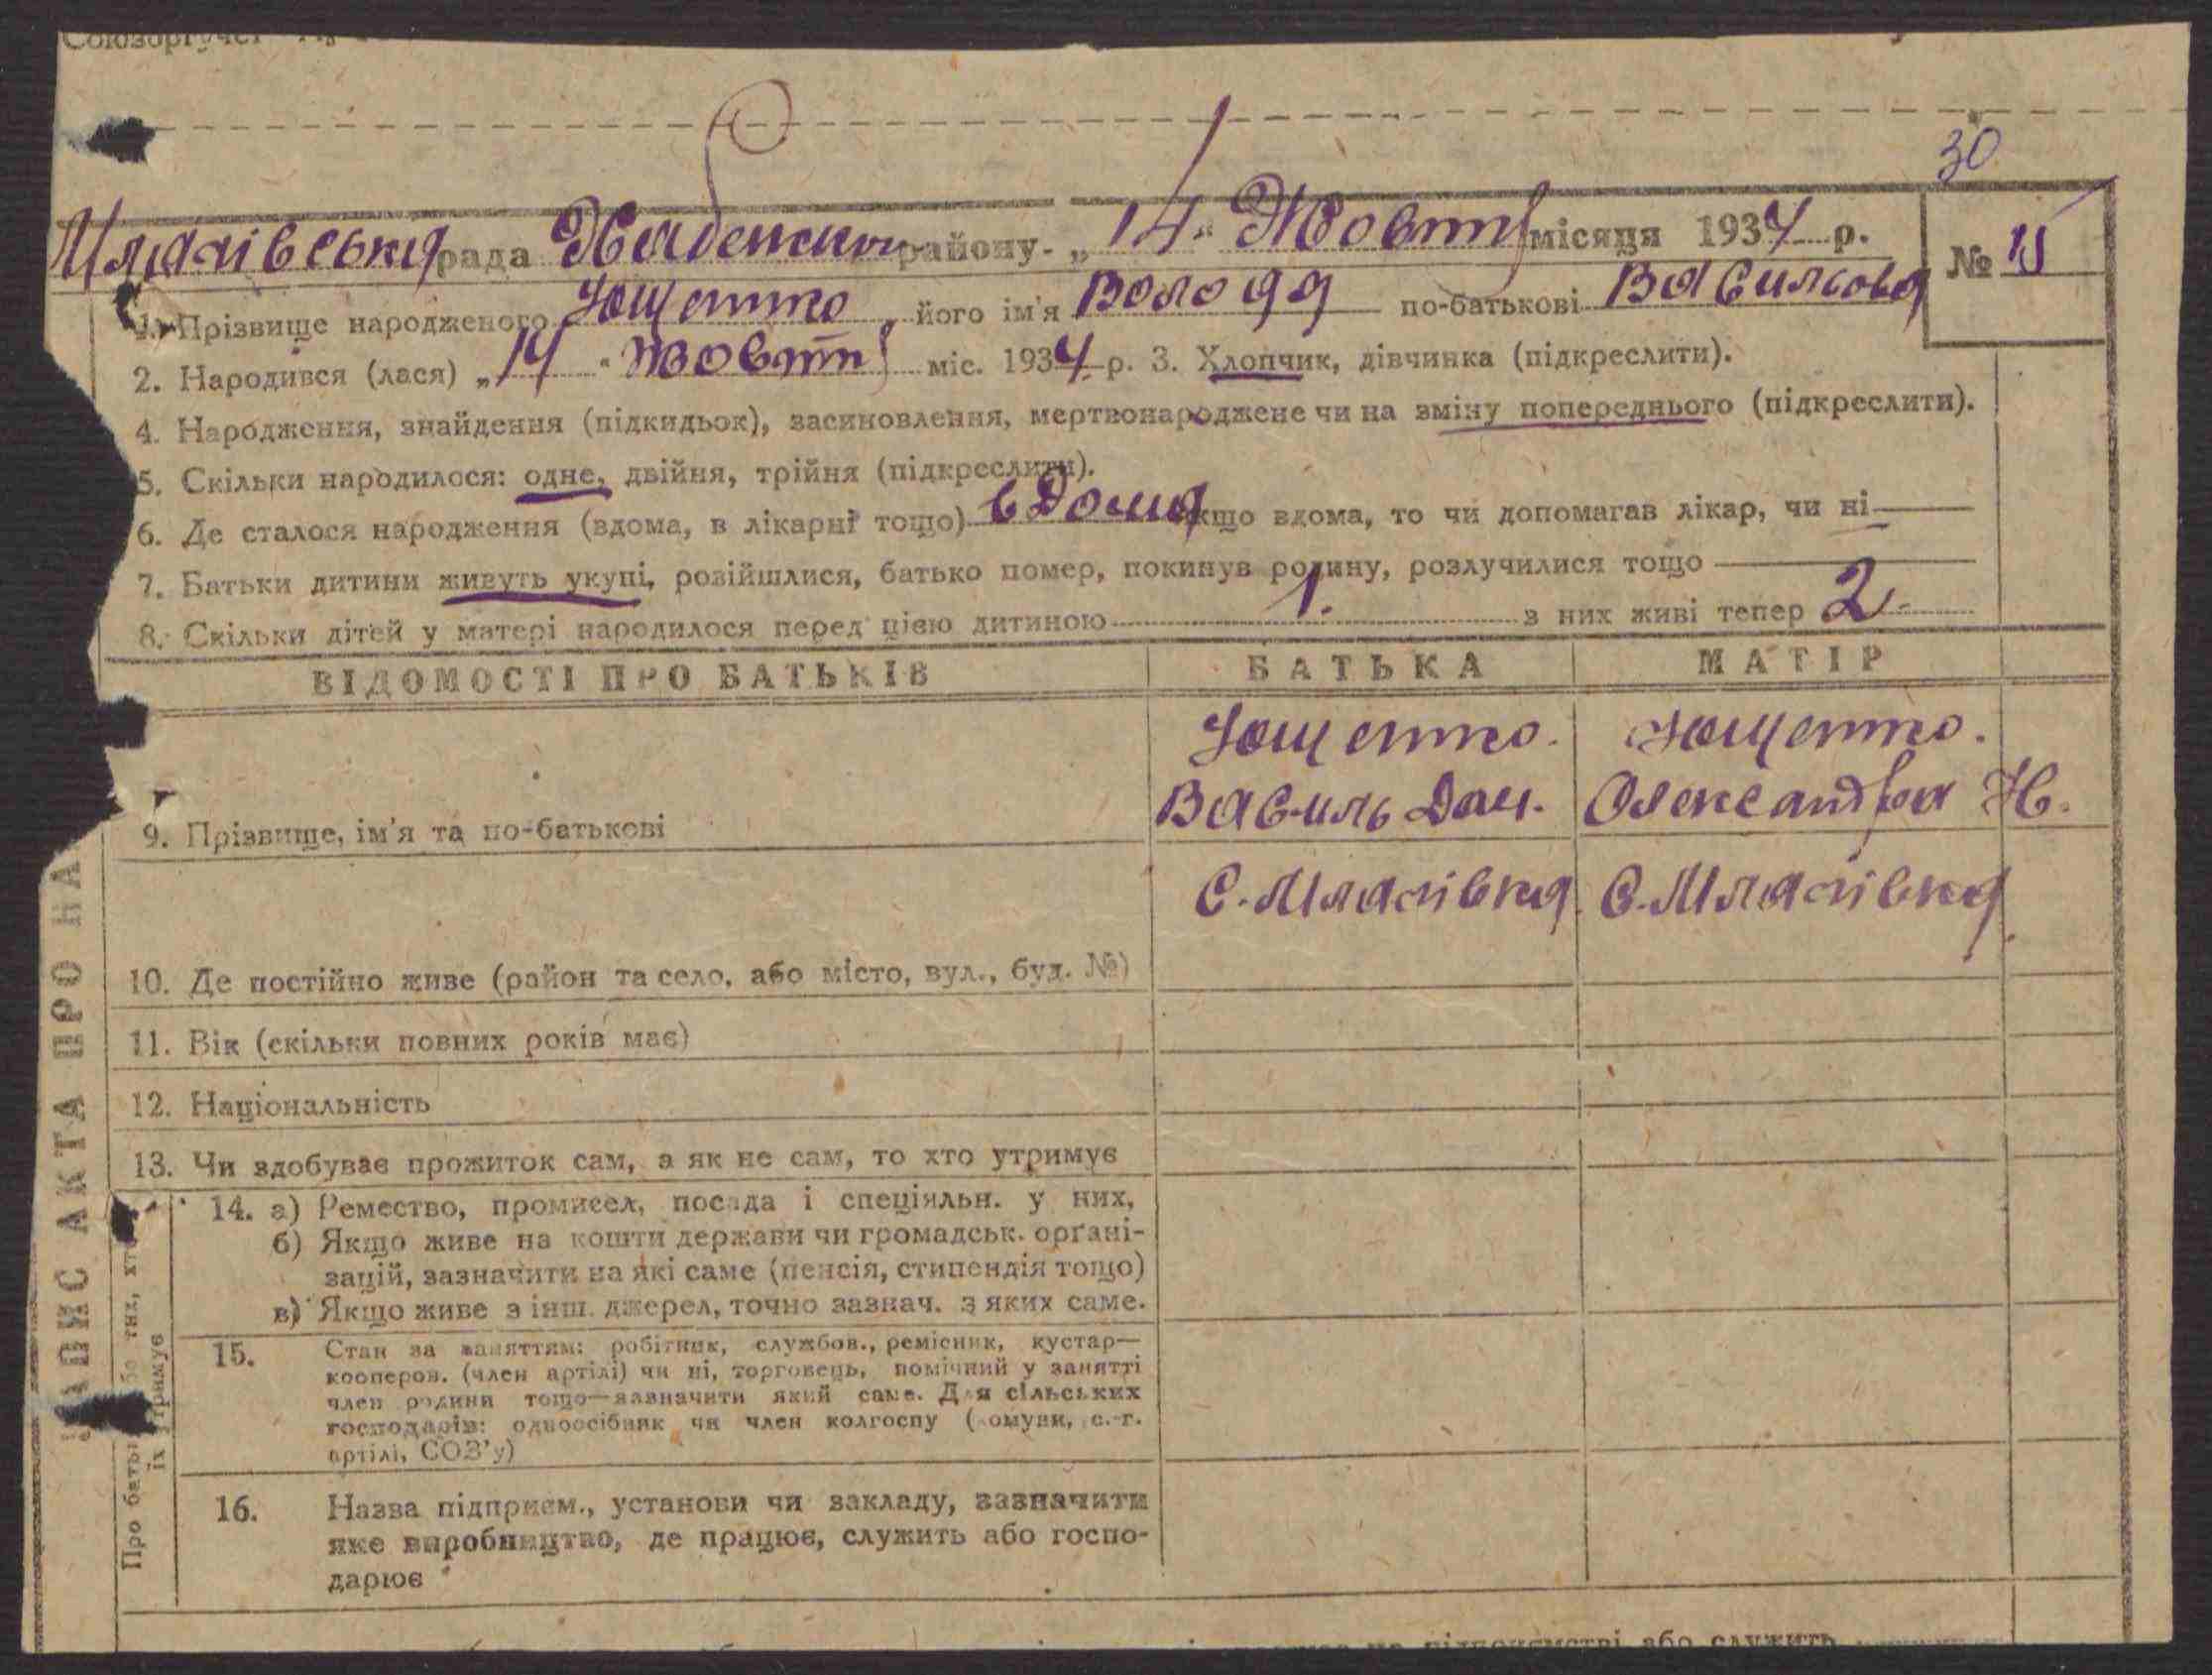 30
Млачівська рада Хабенського району „14“ Жовтня місяця 1934 р.
№ 15
1. Прізвище народженого Ющенко, його ім'я Володя по-батькові Васильова
2. Народився (лася) „14“ Жовтня міс. 1934 р. 3. Хлопчик, дівчинка (підкреслити).
4. Народження, знайдення (підкидьок), засиновлення, мертвонароджене чи на зміну попереднього (підкреслити).
5. Скільки народилося: одне, двійня, трійня (підкреслити).
6. Де сталося народження (вдома, в лікарні тощо) вдома якщо вдома, то чи допомагав лікар, чи ні
7. Батьки дитини живуть укупі, розійшлися, батько помер, покинув родину, розлучилися тощо
8. Скільки дітей у матері народилося перед цією дитиною 1. з них живі тепер 2.
ВІДОМОСТІ ПРО БАТЬКІВ БАТЬКА МАТІР
Ющенко. Ющенко.
Василь Дан. Олександра Н.
9. Прізвище, ім'я та по-батькові
С. Млачівка С. Млачівка
10. Де постійно живе (район та село, або місто, вул., буд. №)
11. Вік (скільки повних років має)
12. Національність
13. Чи здобуває прожиток сам, а як не сам, то хто утримує
14. а) Ремество, промисел, посада і спеціяльн. у них,
б) Якщо живе на кошти держави чи громадськ. орґані-
зацій, зазначити на які саме (пенсія, стипендія тощо)
в) Якщо живе з інш. джерел, точно зазнач. з яких саме.
15. Стан за заняттям: робітник, службов., ремісник, кустар—
кооперов. (член артілі) чи ні, торговець, помічний у занятті
член родини тощо—зазначити який саме. Для сільських
господарів: одноосібник чи член колгоспу (комуни, с.-г.
артілі, СОЗ'у)
16. Назва підприєм., установи чи закладу, зазначити
яке виробництво, де працює, служить або госпо-
дарює
ЗАПИС АКТА ПРО НА
Про бать тих, хто
їх утримує